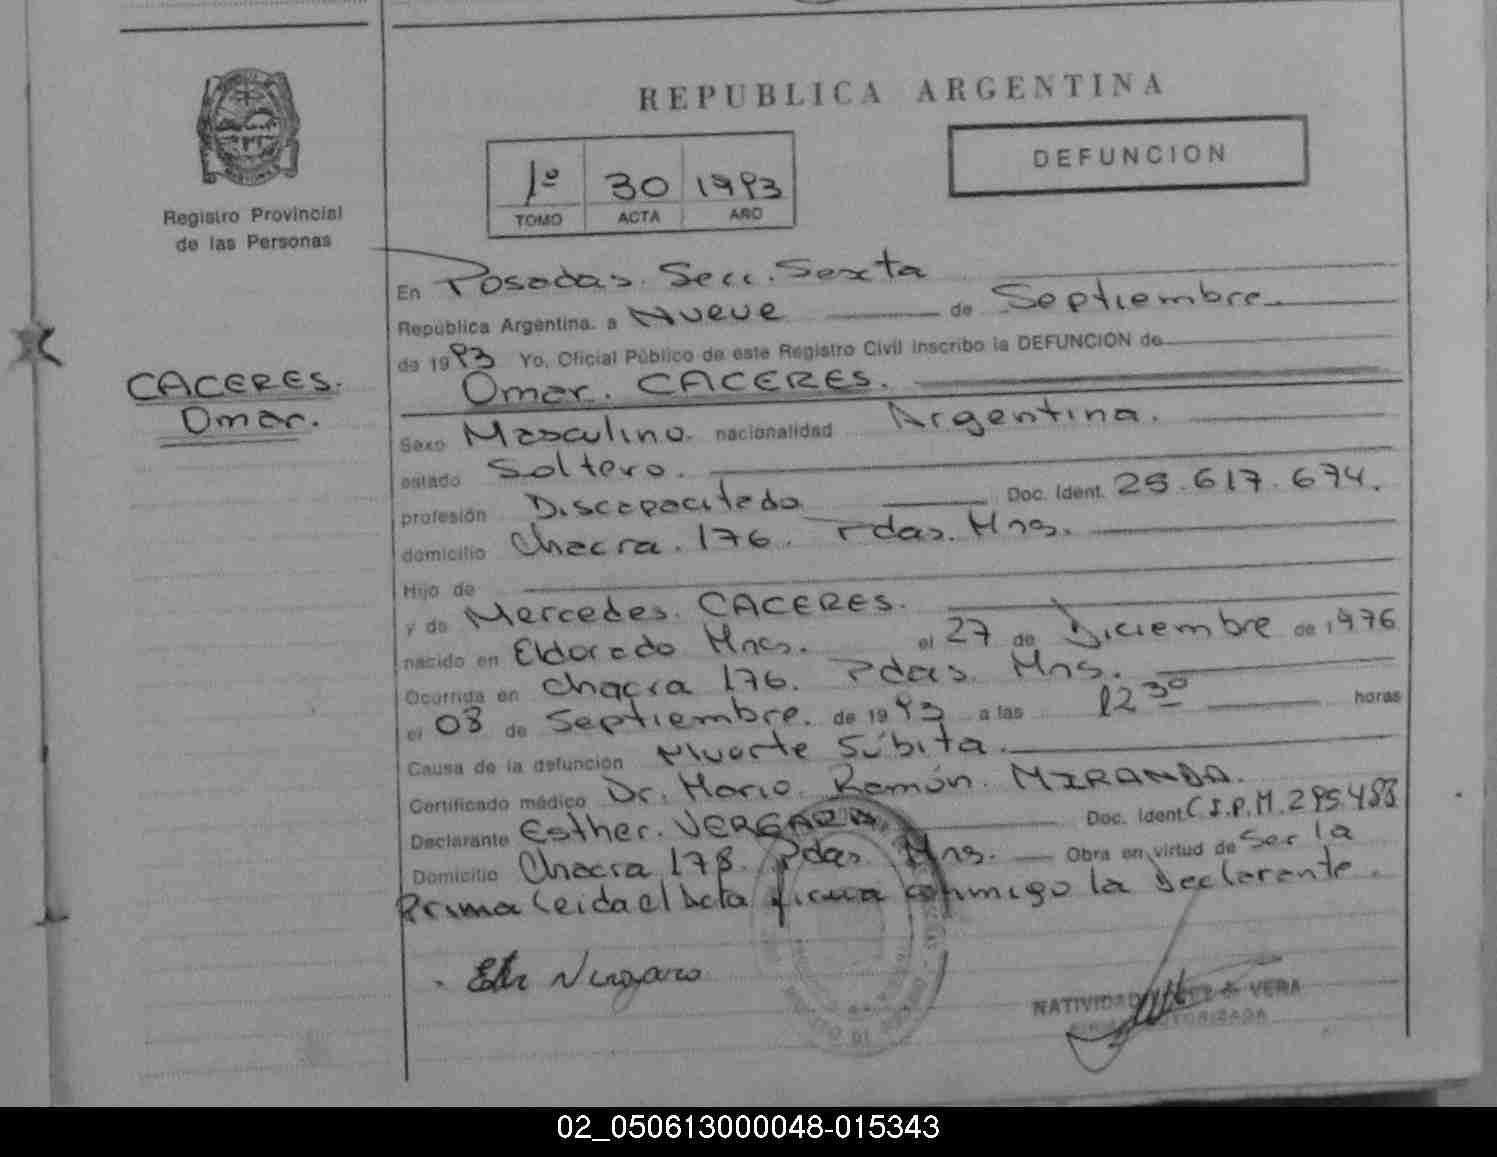 REPUBLICA ARGENTINA
DEFUNCION
1º 30 1993
TOMO ACTA AÑO
Registro Provincial
de las Personas
CACERES.
Omar.
En Posadas. Secc. Sexta
República Argentina. a Nueve de Septiembre.
de 1993 Yo, Oficial Público de este Registro Civil inscribo la DEFUNCION de
Omar. CACERES.
Sexo Masculino. nacionalidad Argentina.
estado Soltero.
profesión Discapacitado Doc. Ident. 25.617.674.
domicilio Chacra. 176. Pdas. Mns.
Hijo de
y de Mercedes. CACERES.
nacido en Eldorado Mnes. el 27 de Diciembre de 1976
Ocurrida en Chacra 176. Pdas. Mns.
el 08 de Septiembre. de 1993 a las 12 30 horas
Causa de la defunción Muerte Súbita.
Certificado médico Dr. Mario. Ramón. MIRANDA.
Declarante Esther. VERGARA Doc. Ident. C.I.P.M. 295.488
Domicilio Chacra 178. Pdas. Mns. Obra en virtud de Ser la
Prima Leida el Acta firma conmigo la Declarante.
Vergara
NATIVIDAD VERA
FIRMA AUTORIZADA
02_050613000048-015343